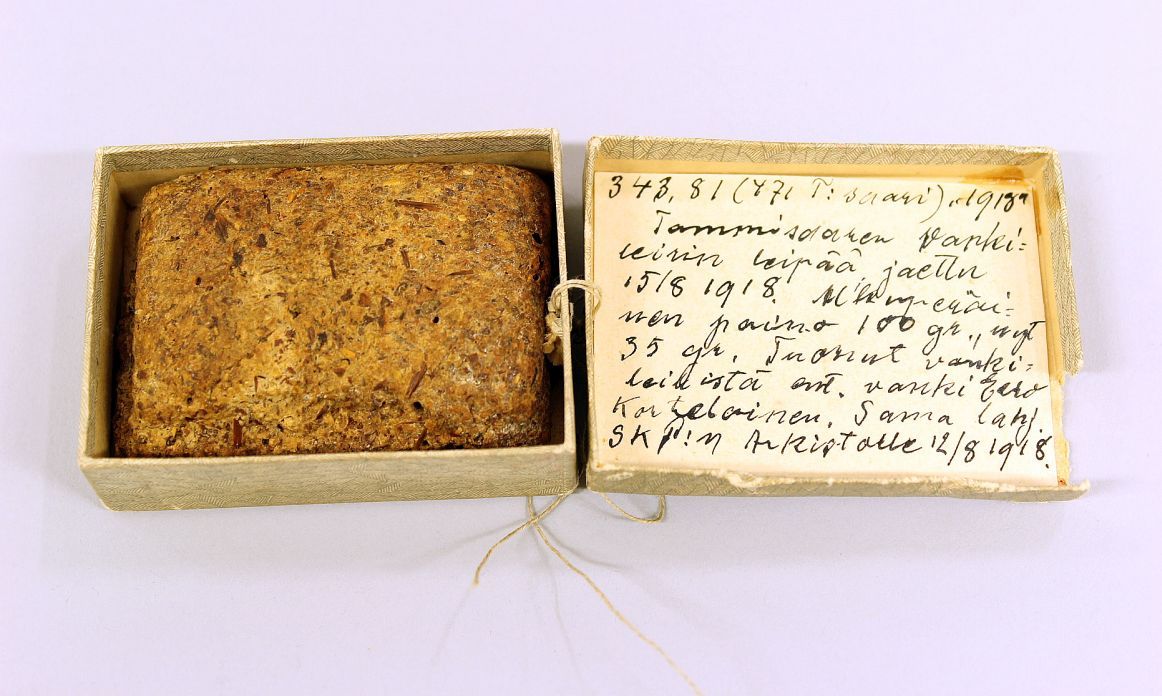 343,81 (471 T:saari). 1918"
Tammisaaren vanki=
leirin leipää, jaettu
15/8 1918. Alkuperäi=
nen paino 100 gr., nyt
35 gr. Tuonut vanki=
leiristä ent. vanki Eero
Kortelainen. Sama lahj.
SKP:n Arkistolle 12/8 1918.